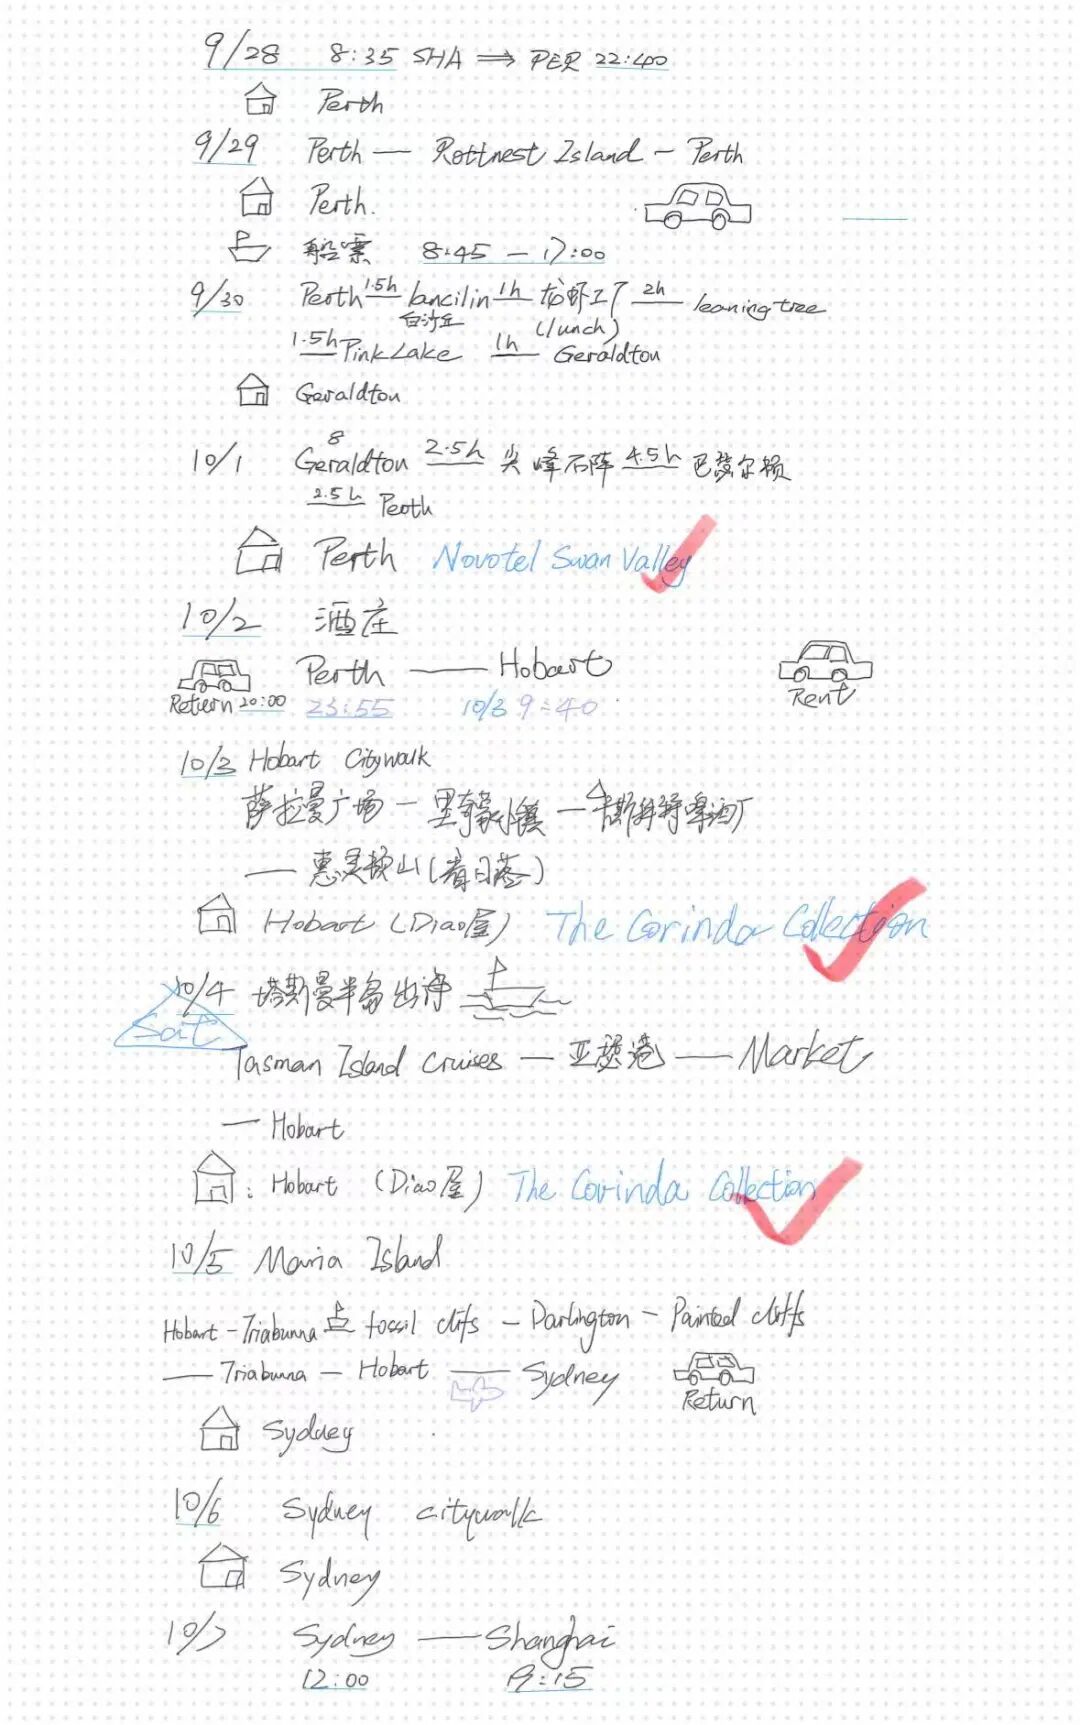 9/28 8:35 SHA ⇒ PER 22:40
Perth
9/29 Perth — Rottnest Island — Perth
Perth.
船票 8:45 — 17:00
9/30 Perth 1.5h lancilin 1h 龙虾工厂 2h leaning tree
白沙丘 (lunch)
1.5h Pink Lake 1h Geraldton
Geraldton
8
10/1 Geraldton 2.5h 尖峰石阵 4.5h 巴瑟尔顿
2.5h Perth
Perth Novotel Swan Valley
10/2 酒庄
Perth — Hobart
Return 20:00 23:55 10/3 9:40 Rent
10/3 Hobart Citywalk
萨拉曼广场 — 里奇蒙小镇 — 卡斯特啤酒厂
— 惠灵顿山(看日落)
Hobart (Diao屋) The Corinda Collection
10/4 塔斯曼半岛出海
Sat
Tasman Island Cruises — 亚瑟港 — Market
— Hobart
: Hobart (Diao屋) The Corinda Collection
10/5 Maria Island
Hobart - Triabunna fossil clifs - Darlington - Painted cliffs
— Triabunna — Hobart — Sydney
Return
Sydney
10/6 Sydney citywalk
Sydney
10/7 Sydney — Shanghai
12:00 19:15